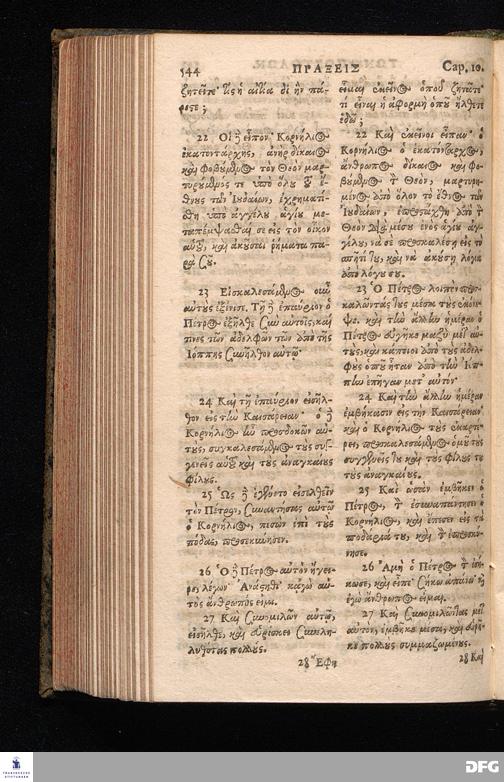 544 ΠΡΑΞΕΙΣ Cap. 10.
ζητεῖτε· τίς ἡ αἰτία δι᾽ ἣν πά-
ρεστε;
22 Οἱ δὲ εἶπον· Κορνήλιος
ἑκατοντάρχης, ἀνὴρ δίκαιος
καὶ φοβούμενος τὸν Θεὸν μαρ-
τυρούμενός τε ὑπὸ ὅλου τοῦ ἔ-
θνους τῶν Ἰουδαίων, ἐχρηματί-
σθη ὑπὸ ἀγγέλου ἁγίου με-
ταπέμψασθαί σε εἰς τὸν οἶκον
αὐτοῦ, καὶ ἀκοῦσαι ῥήματα πα-
ρὰ σοῦ.
23 Εἰσκαλεσάμενος οὖν
αὐτοὺς ἐξένισε. Τῇ δὲ ἐπαύριον ὁ
Πέτρος ἐξῆλθε σὺν αὐτοῖς, καί
τινες τῶν ἀδελφῶν τῶν ἀπὸ τῆς
Ἰόππης συνῆλθον αὐτῷ·
24 Καὶ τῇ ἐπαύριον εἰσῆλ-
θον εἰς τὴν Καισάρειαν· ὁ δὲ
Κορνήλιος ἦν προσδοκῶν αὐ-
τούς, συγκαλεσάμενος τοὺς συγ-
γενεῖς αὐτοῦ καὶ τοὺς ἀναγκαίους
φίλους.
25 Ὡς δὲ ἐγένετο εἰσελθεῖν
τὸν Πέτρον, συναντήσας αὐτῷ
ὁ Κορνήλιος, πεσὼν ἐπὶ τοὺς
πόδας, προσεκύνησεν.
26 Ὁ δὲ Πέτρος αὐτὸν ἤγει-
ρε, λέγων· Ἀνάστηθι· κἀγὼ αὐ-
τὸς ἄνθρωπός εἰμι.
27 Καὶ συνομιλῶν αὐτῷ,
εἰσῆλθε, καὶ εὑρίσκει συνελη-
λυθότας πολλούς.
28 Ἔφη
εἶμαι ἐκεῖνος ὁποῦ ζητᾶτε·
τί εἶναι ἡ ἀφορμὴ ὁποῦ ἤλθετε
ἐδῶ;
22 Καὶ ἐκεῖνοι εἶπαν· ὁ
Κορνήλιος ὁ ἑκατόνταρχος,
ἄνθρωπος δίκαιος καὶ φο-
βούμενος τὸν Θεόν, μαρτυρη-
μένος ἀπὸ ὅλον τὸ ἔθνος τῶν
Ἰουδαίων, ἐπροστάχθη ἀπὸ τὸν
Θεὸν διὰ μέσου ἑνὸς ἁγίου ἀγ-
γέλου, νὰ σὲ προσκαλέσῃ εἰς τὸ
σπῆτί του, καὶ νὰ ἀκούσῃ λόγια
ἀπὸ λόγου σου.
23 Ὁ Πέτρος λοιπὸν προσ-
καλώντας τους μέσα τοὺς ἐκόνε-
ψε. καὶ τὴν ἄλλην ἡμέραν ὁ
Πέτρος εὐγῆκε μαζὺ μὲ αὐ-
τούς· καὶ κάποιοι ἀπὸ τοὺς ἀδελ-
φοὺς ὁποῦ ἦταν ἀπὸ τὴν Ἰόπ-
πην ἐπῆγαν μετ᾽ αὐτόν·
24 Καὶ τὴν ἄλλην ἡμέραν
ἐμβήκασιν εἰς τὴν Καισάρειαν·
καὶ ὁ Κορνήλιος τοὺς ἐκαρτέ-
ρει, προσκαλεσάμενος ὁμοῦ τοὺς
συγγενεῖς του καὶ τοὺς φίλους του
τοὺς ἀναγκαίους.
25 Καὶ ὡσὰν ἐμβῆκεν ὁ
Πέτρος, τὸν ἐσυναπάντησεν ὁ
Κορνήλιος, καὶ ἔπεσεν εἰς τὰ
ποδάριά του, καὶ τὸν ἐπροσκύ-
νησε.
26 Ἀμὴ ὁ Πέτρος τὸν ἐσή-
κωσε, καὶ εἶπε· Σήκω ἀπάνω· καὶ
ἐγὼ ἄνθρωπος εἶμαι.
27 Καὶ συνομιλῶντας μὲ
αὐτόν, ἐμβῆκε μέσα, καὶ εὑρῆ-
κε πολλοὺς συμμαζωμένους.
28 Καὶ
DFG